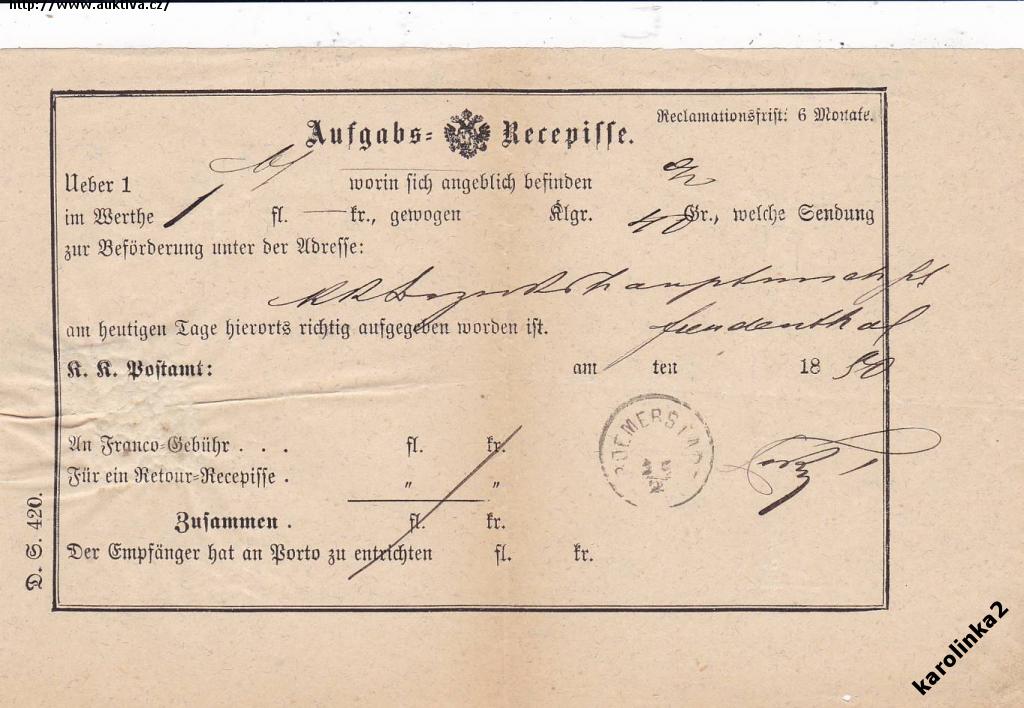 http://www.auktiva.cz/
Reclamationsfrist: 6 Monate.
Aufgabs= Recepisse.
Ueber 1 worin sich angeblich befinden
im Werthe 1 fl. — kr., gewogen Klgr. 40 Gr., welche Sendung
zur Beförderung unter der Adresse:
KK Bezirkshauptmannschaft
am heutigen Tage hierorts richtig aufgegeben worden ist. Freudenthal
K. K. Postamt: am ten 18
ROEMERSTADT
An Franco=Gebühr . . . fl. kr.
Für ein Retour=Recepisse . " "
Zusammen . fl. kr.
Der Empfänger hat an Porto zu entrichten fl. kr.
D. S. 420.
karolinka2